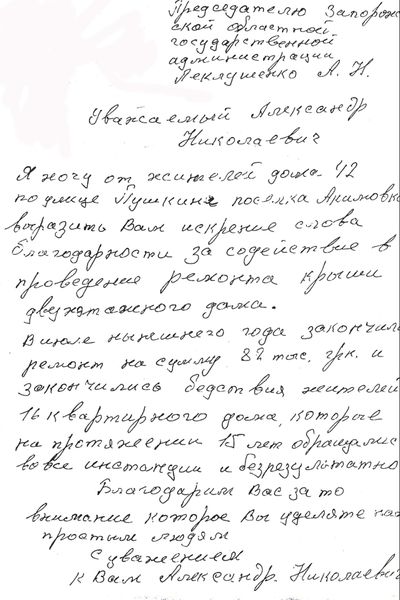 Председателю Запорож
ской областной
государственной
администрации
Пеклушенко А. Н.
Уважаемый Александр
Николаевич
Я хочу от жителей дома 42
по улице Пушкина поселка Акимовка
выразить Вам искрение слова
благодарности за содействие в
проведение ремонта крыши
двухэтажного дома.
В июле нынешнего года закончил
ремонт на сумму 82 тыс. грн. и
закончились бедствия жителей
16 квартирного дома, которые
на протяжении 15 лет обращались
во все инстанции и безрезультатно
Благодарим Вас за то
внимание которое Вы уделяете нам
простым людям
С уважением
к Вам Александр. Николаевич